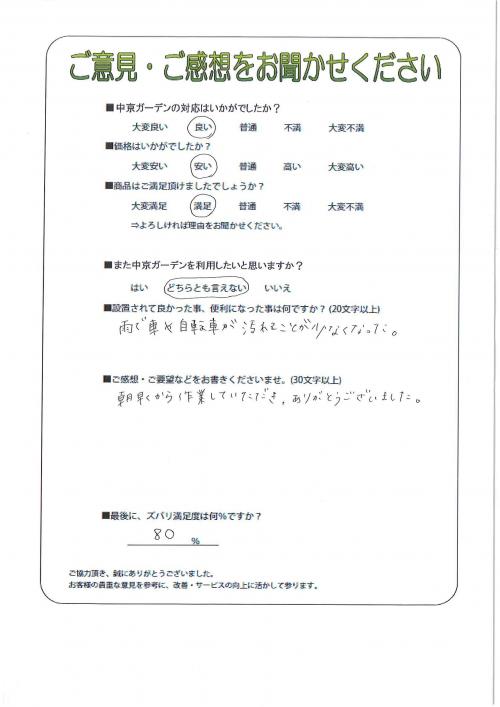 ご意見・ご感想をお聞かせください
■中京ガーデンの対応はいかがでしたか？
大変良い 良い 普通 不満 大変不満
■価格はいかがでしたか？
大変安い 安い 普通 高い 大変高い
■商品はご満足頂けましたでしょうか？
大変満足 満足 普通 不満 大変不満
⇒よろしければ理由をお聞かせください。
■また中京ガーデンを利用したいと思いますか？
はい どちらとも言えない いいえ
■設置されて良かった事、便利になった事は何ですか？(20文字以上)
雨で車や自転車が汚れることが少なくなった。
■ご感想・ご要望などをお書きくださいませ。(30文字以上)
朝早くから作業していただき、ありがとうございました。
■最後に、ズバリ満足度は何%ですか？
80 %
ご協力頂き、誠にありがとうございました。
お客様の貴重な意見を参考に、改善・サービスの向上に活かして参ります。